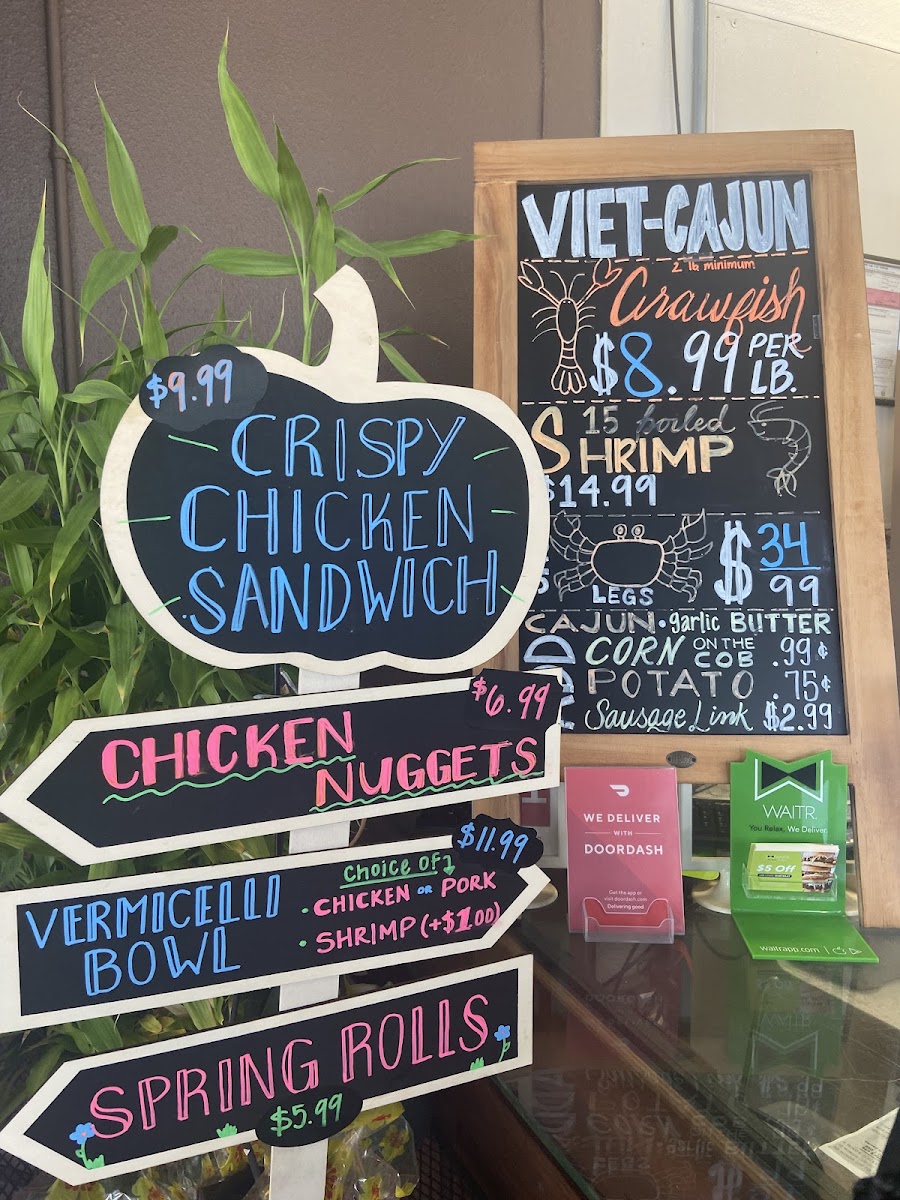 $9.99
CRISPY
CHICKEN
SANDWICH
$6.99
CHICKEN
NUGGETS
$11.99
VERMICELLI
BOWL
CHOICE OF 1
• CHICKEN OR PORK
• SHRIMP (+$1.00)
SPRING ROLLS
$5.99
VIET-CAJUN
2 lb minimum
Crawfish
$8.99 PER
LB.
15 boiled
SHRIMP
$14.99
LEGS
$34
99
CAJUN • garlic BUTTER
CORN ON THE
COB .99¢
POTATO .75¢
Sausage Link $2.99
WE DELIVER
WITH
DOORDASH
Get the app or
visit doordash.com
Delivering good
WAITR
You Relax, We Deliver
$5 Off
waitrapp.com